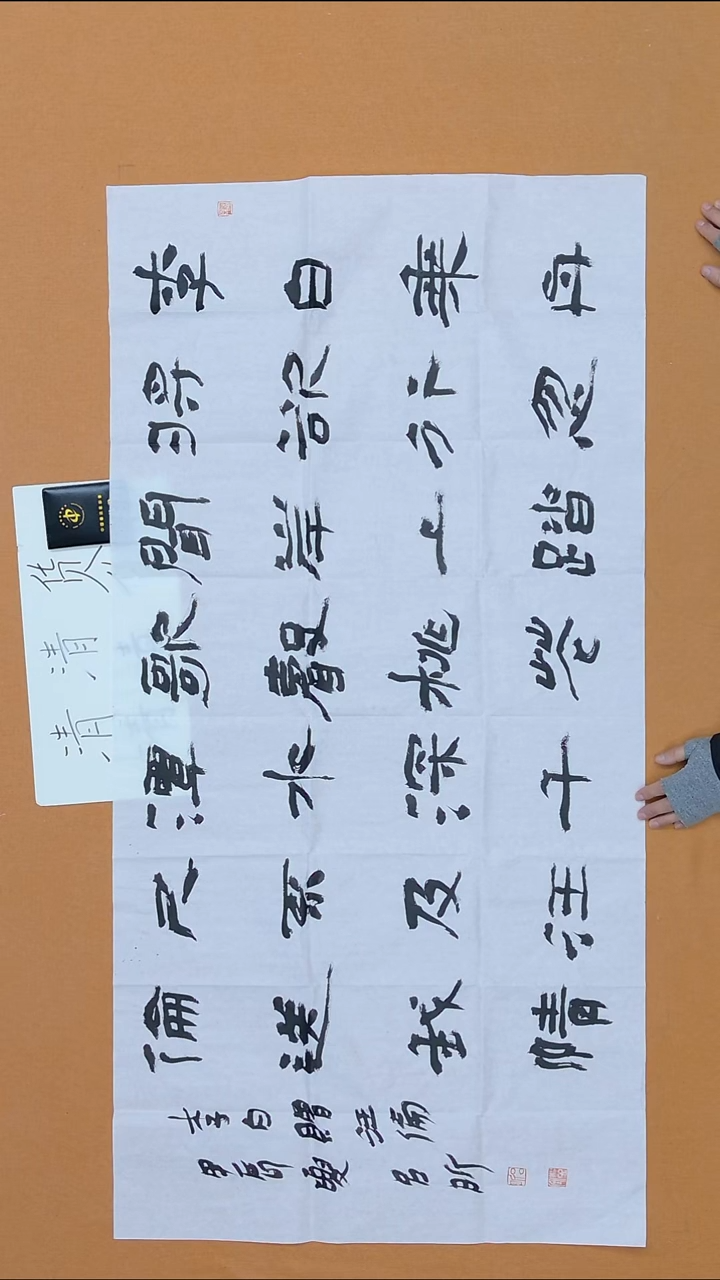 李白乘舟
將欲行忽
聞岸上踏
歌聲桃花
潭水深千
尺不及汪
倫送我情
李白贈汪倫
夏
清清货